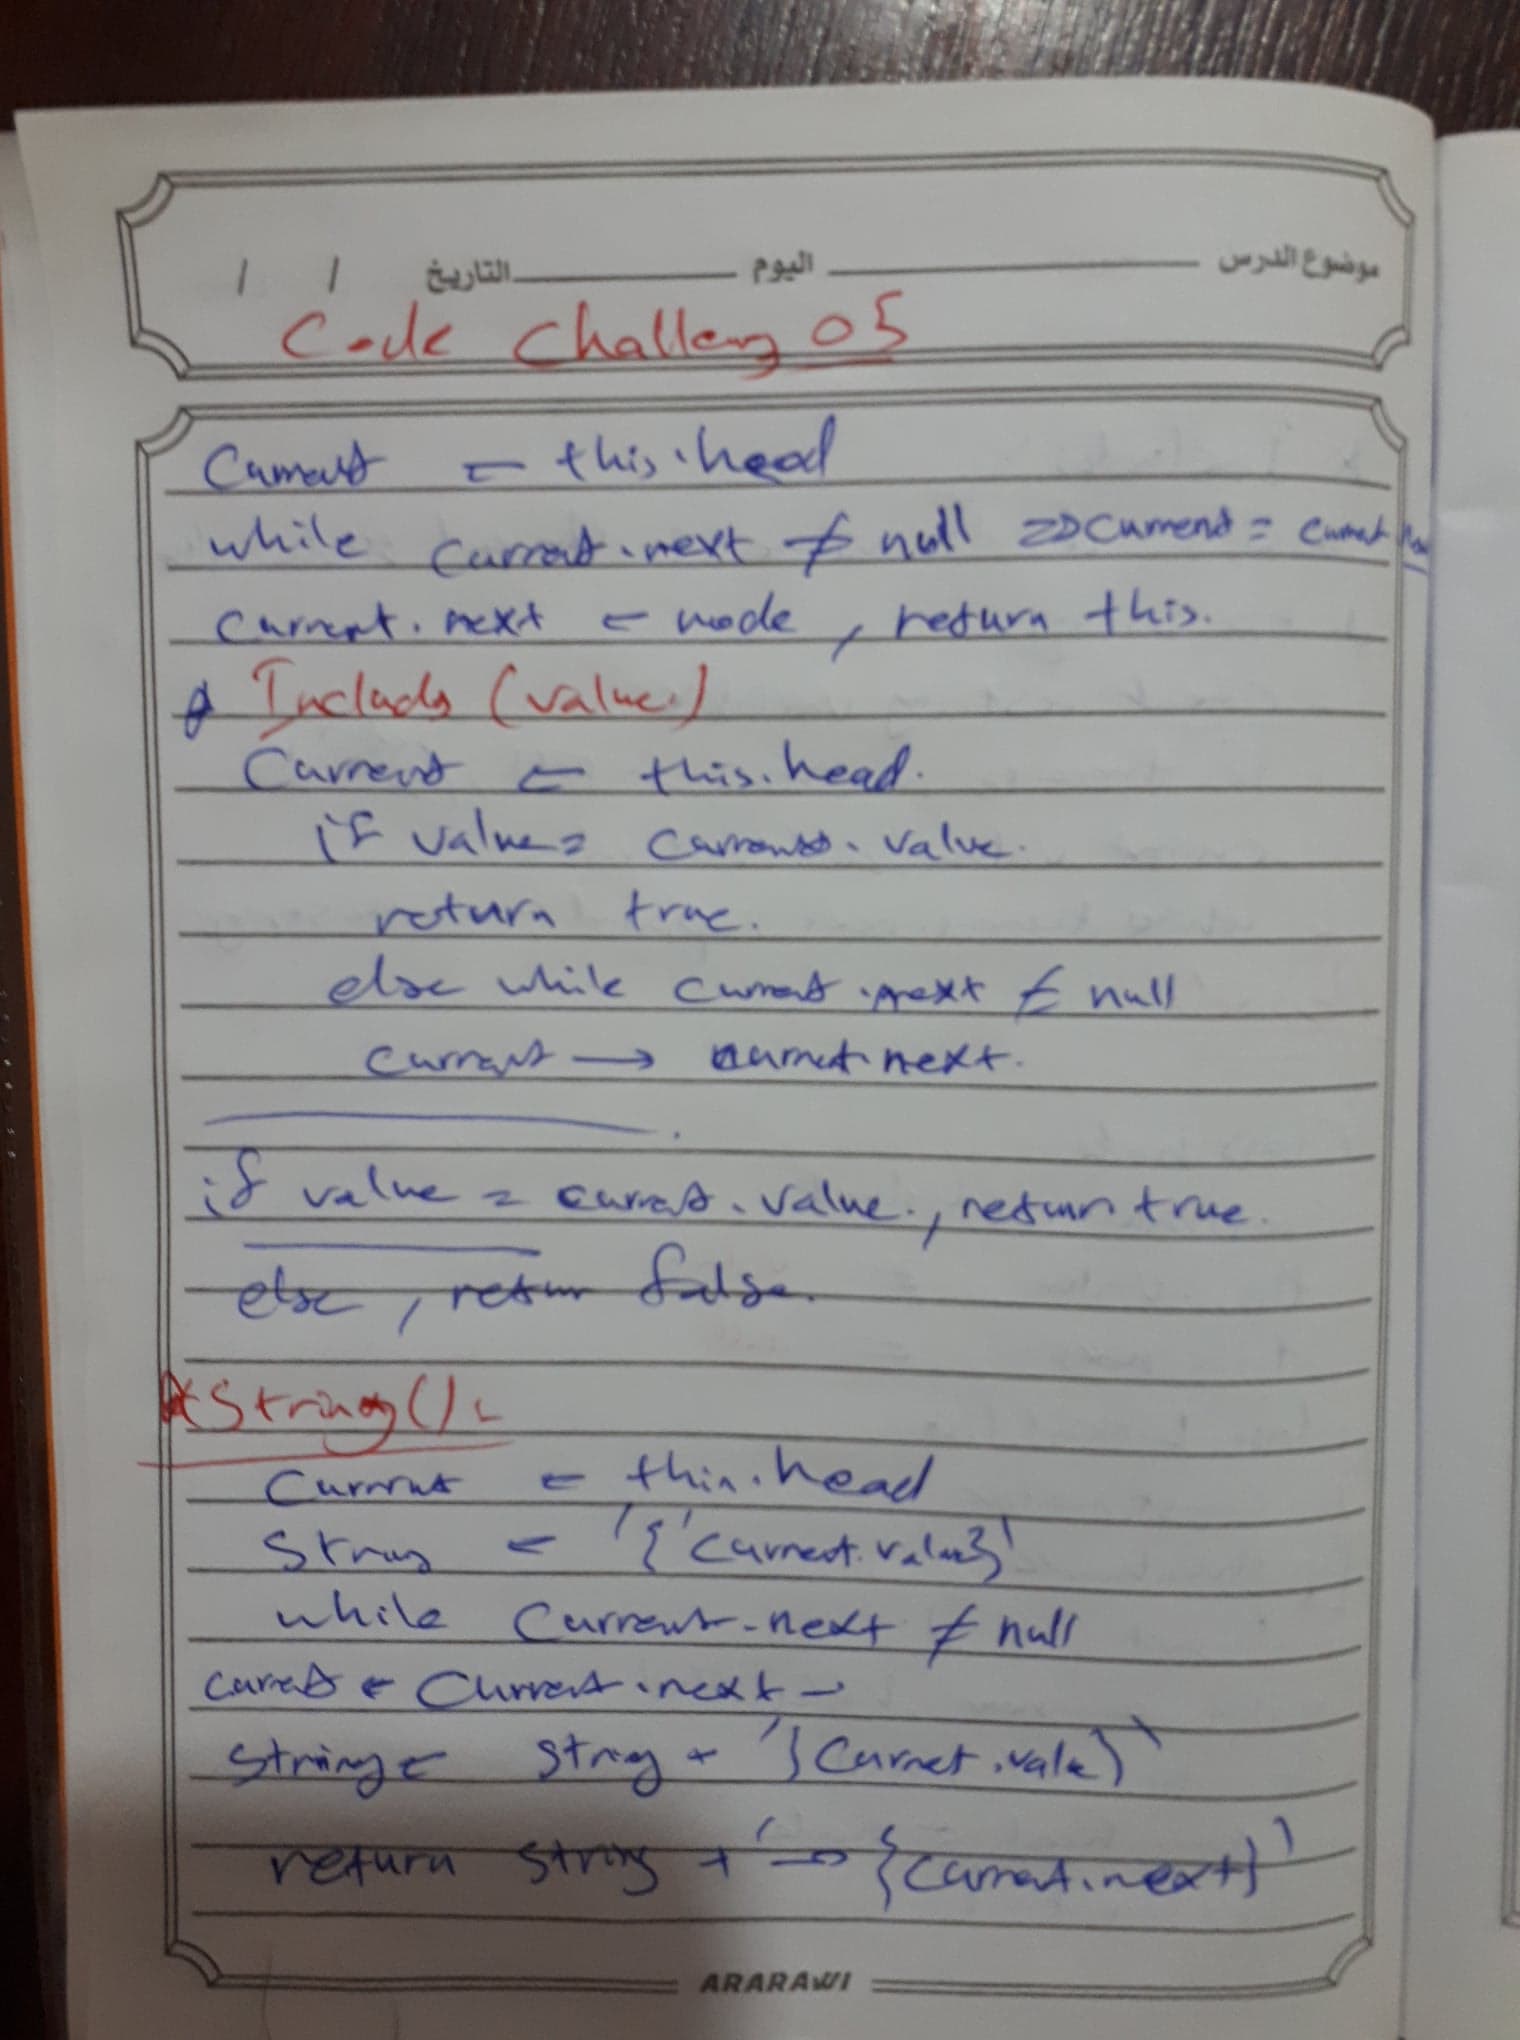 موضوع الدرس ______ اليوم ______ التاريخ / /
Code Challeng 05
Current ← this.head
while current.next ≠ null => current = current.
current. next ← node, return this.
Includs (value.)
Current ← this.head.
if value = current. value.
return true.
else while current .next ≠ null
current → current next.
if value = current. value., return true.
else, retur false.
String()
Current ← this.head
String ← '{'current.value}'
while Current.next ≠ null
current ← Current.next →
string ← string + '{Current.value}'
return string + '→ {current.next}'
ARARAWI